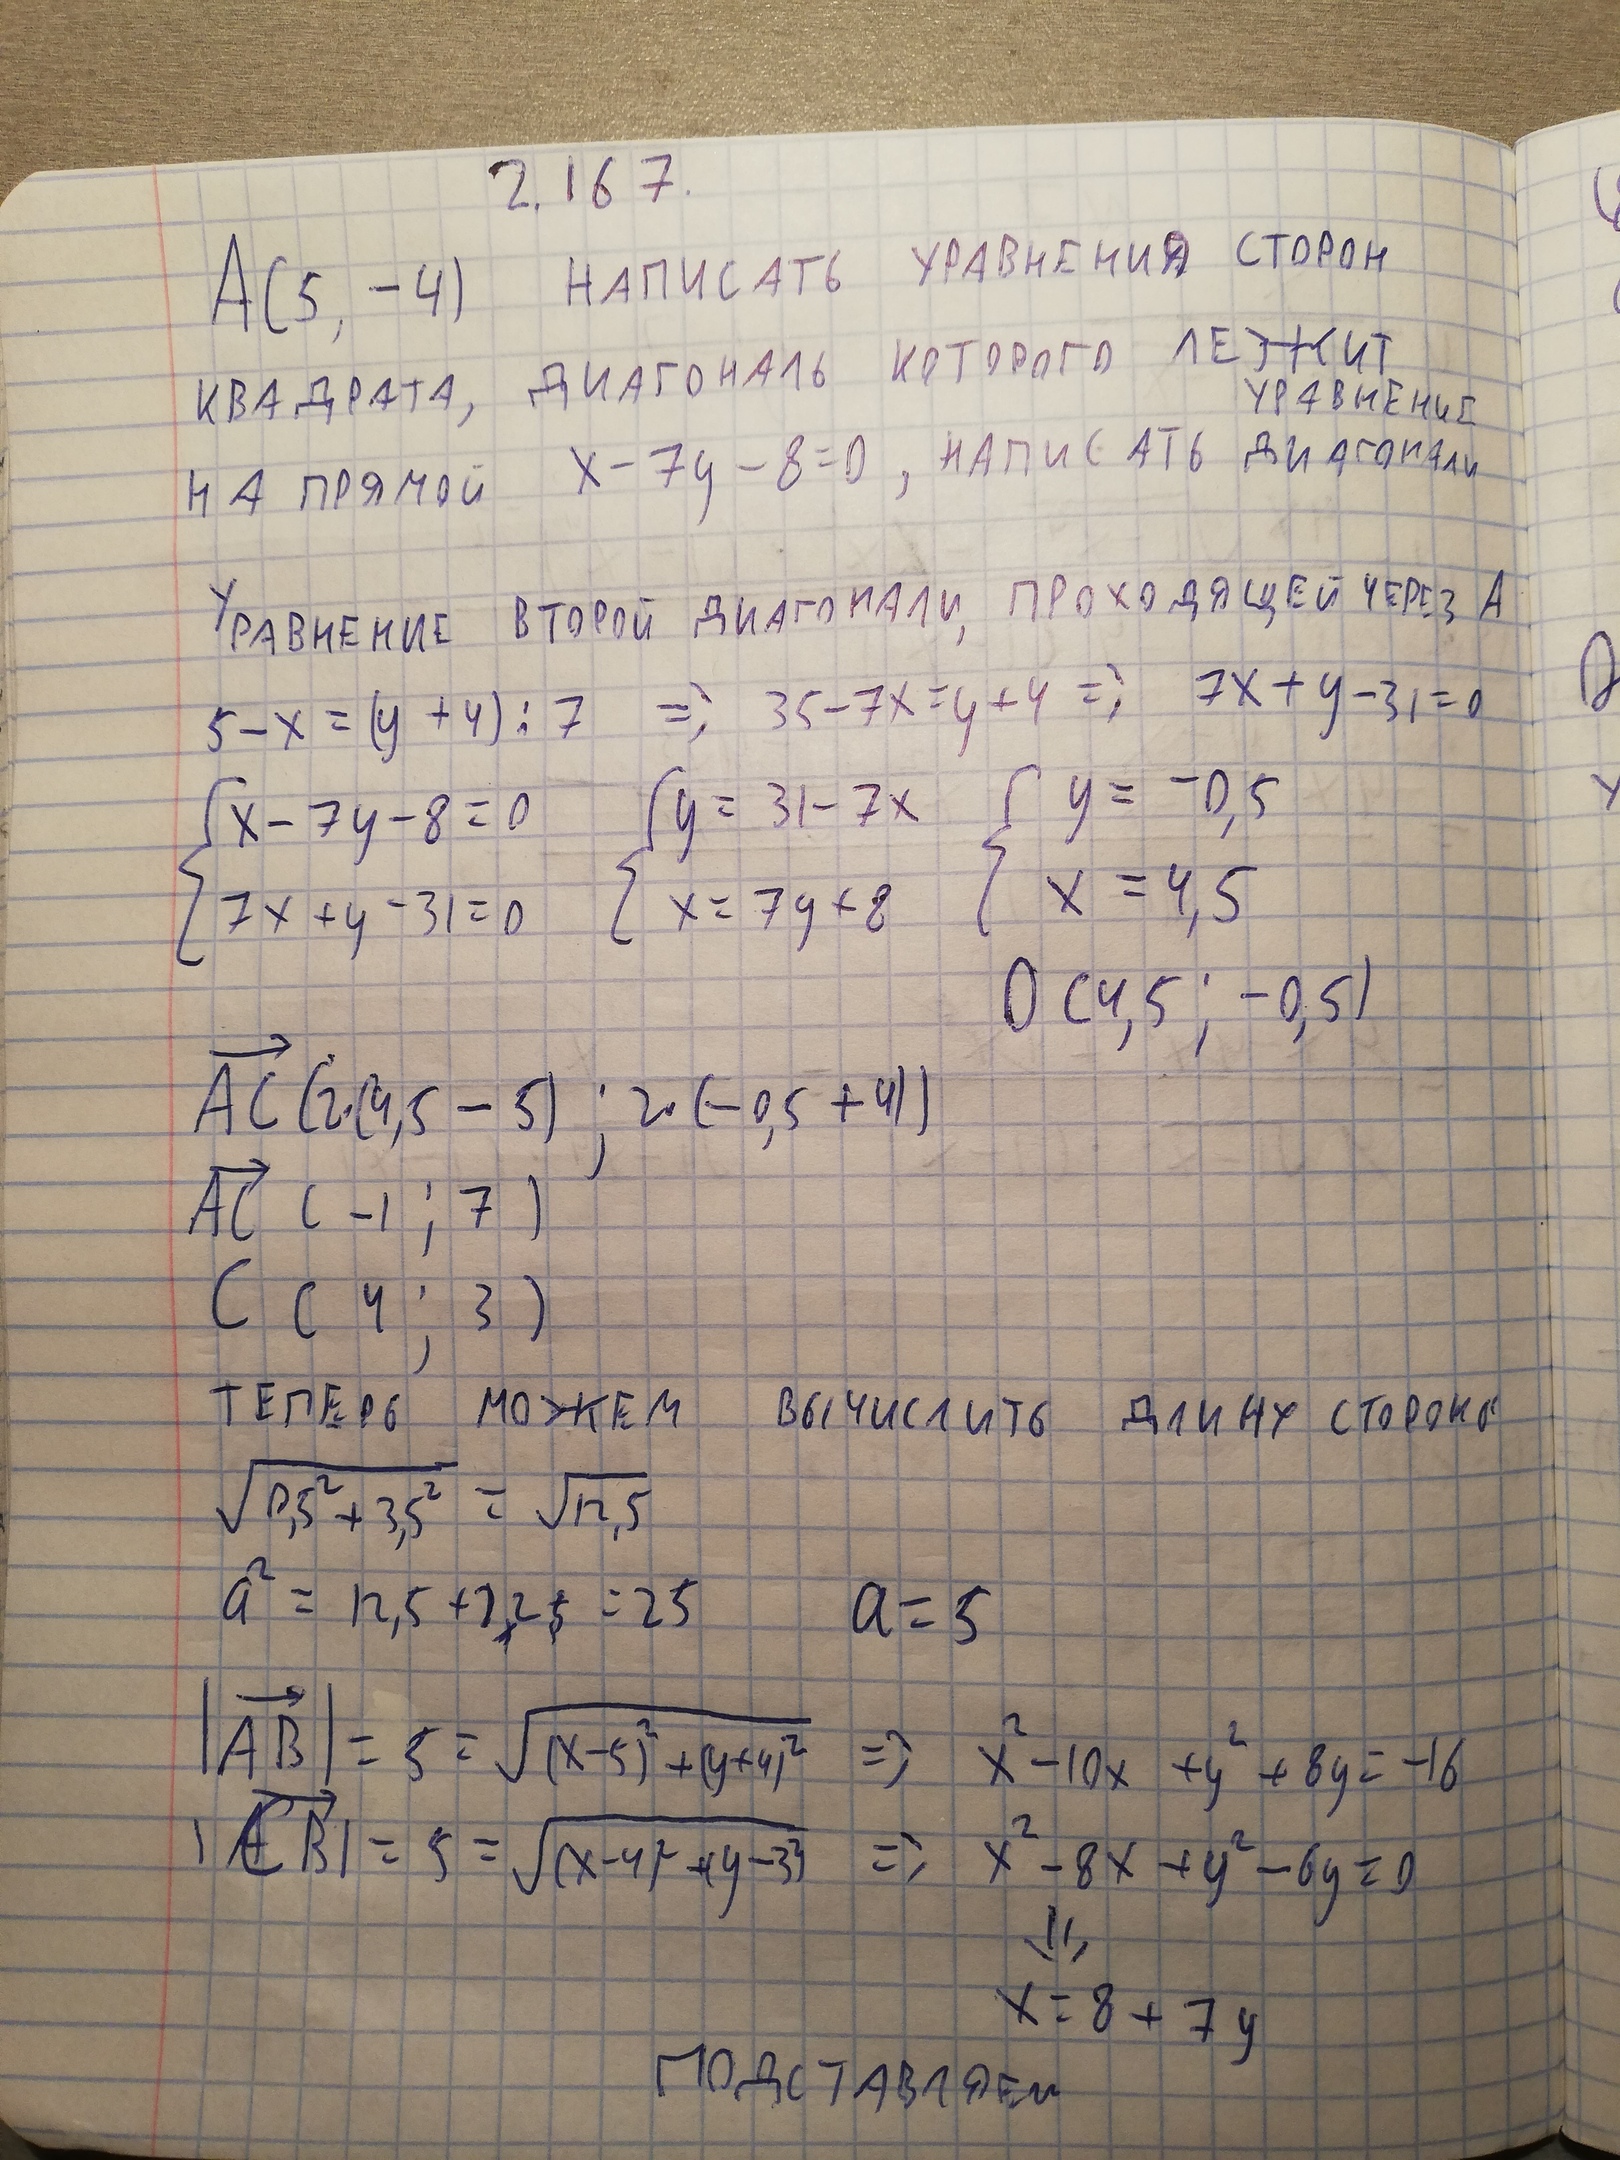 2.167.
А(5, -4) НАПИСАТЬ УРАВНЕНИЯ СТОРОН
КВАДРАТА, ДИАГОНАЛЬ КОТОРОГО ЛЕЖИТ
НА ПРЯМОЙ x-7y-8=0, НАПИСАТЬ УРАВНЕНИЕ ДИАГОНАЛИ
УРАВНЕНИЕ ВТОРОЙ ДИАГОНАЛИ, ПРОХОДЯЩЕЙ ЧЕРЕЗ А
5-x=(y+4):7 => 35-7x=y+4 => 7x+y-31=0
{x-7y-8=0 {y=31-7x {y=-0,5
7x+y-31=0 x=7y+8 x=4,5
O(4,5; -0,5)
AC(2·(4,5-5); 2·(-0,5+4))
AC(-1; 7)
C(4; 3)
ТЕПЕРЬ МОЖЕМ ВЫЧИСЛИТЬ ДЛИНУ СТОРОНЫ
√(0,5²+3,5²) = √12,5
a² = 12,5 + =25 a=5
|AB| = 5 = √((x-5)²+(y+4)²) => x²-10x+y²+8y=-16
|CB| = 5 = √((x-4)²+(y-3)²) => x²-8x+y²-6y=0
⇓
x=8+7y
ПОДСТАВЛЯЕМ